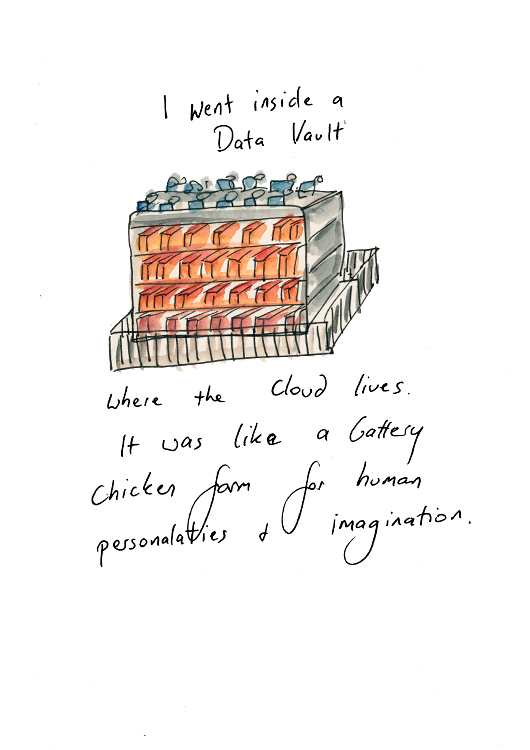 I went inside a
Data Vault
where the Cloud lives.
It was like a battery
Chicken farm for human
personalaties & imagination.